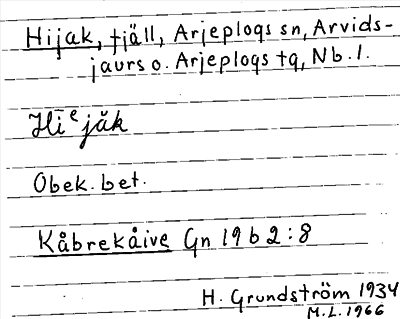 Hijak, fjäll, Arjeplogs sn, Arvids-
jaurs o. Arjeplogs tg, Nb. l.
Hīᵉjăk
Obek. bet.
Kåbrekåive Gn 19 b 2 : 8
H. Grundström 1934
M.L. 1966